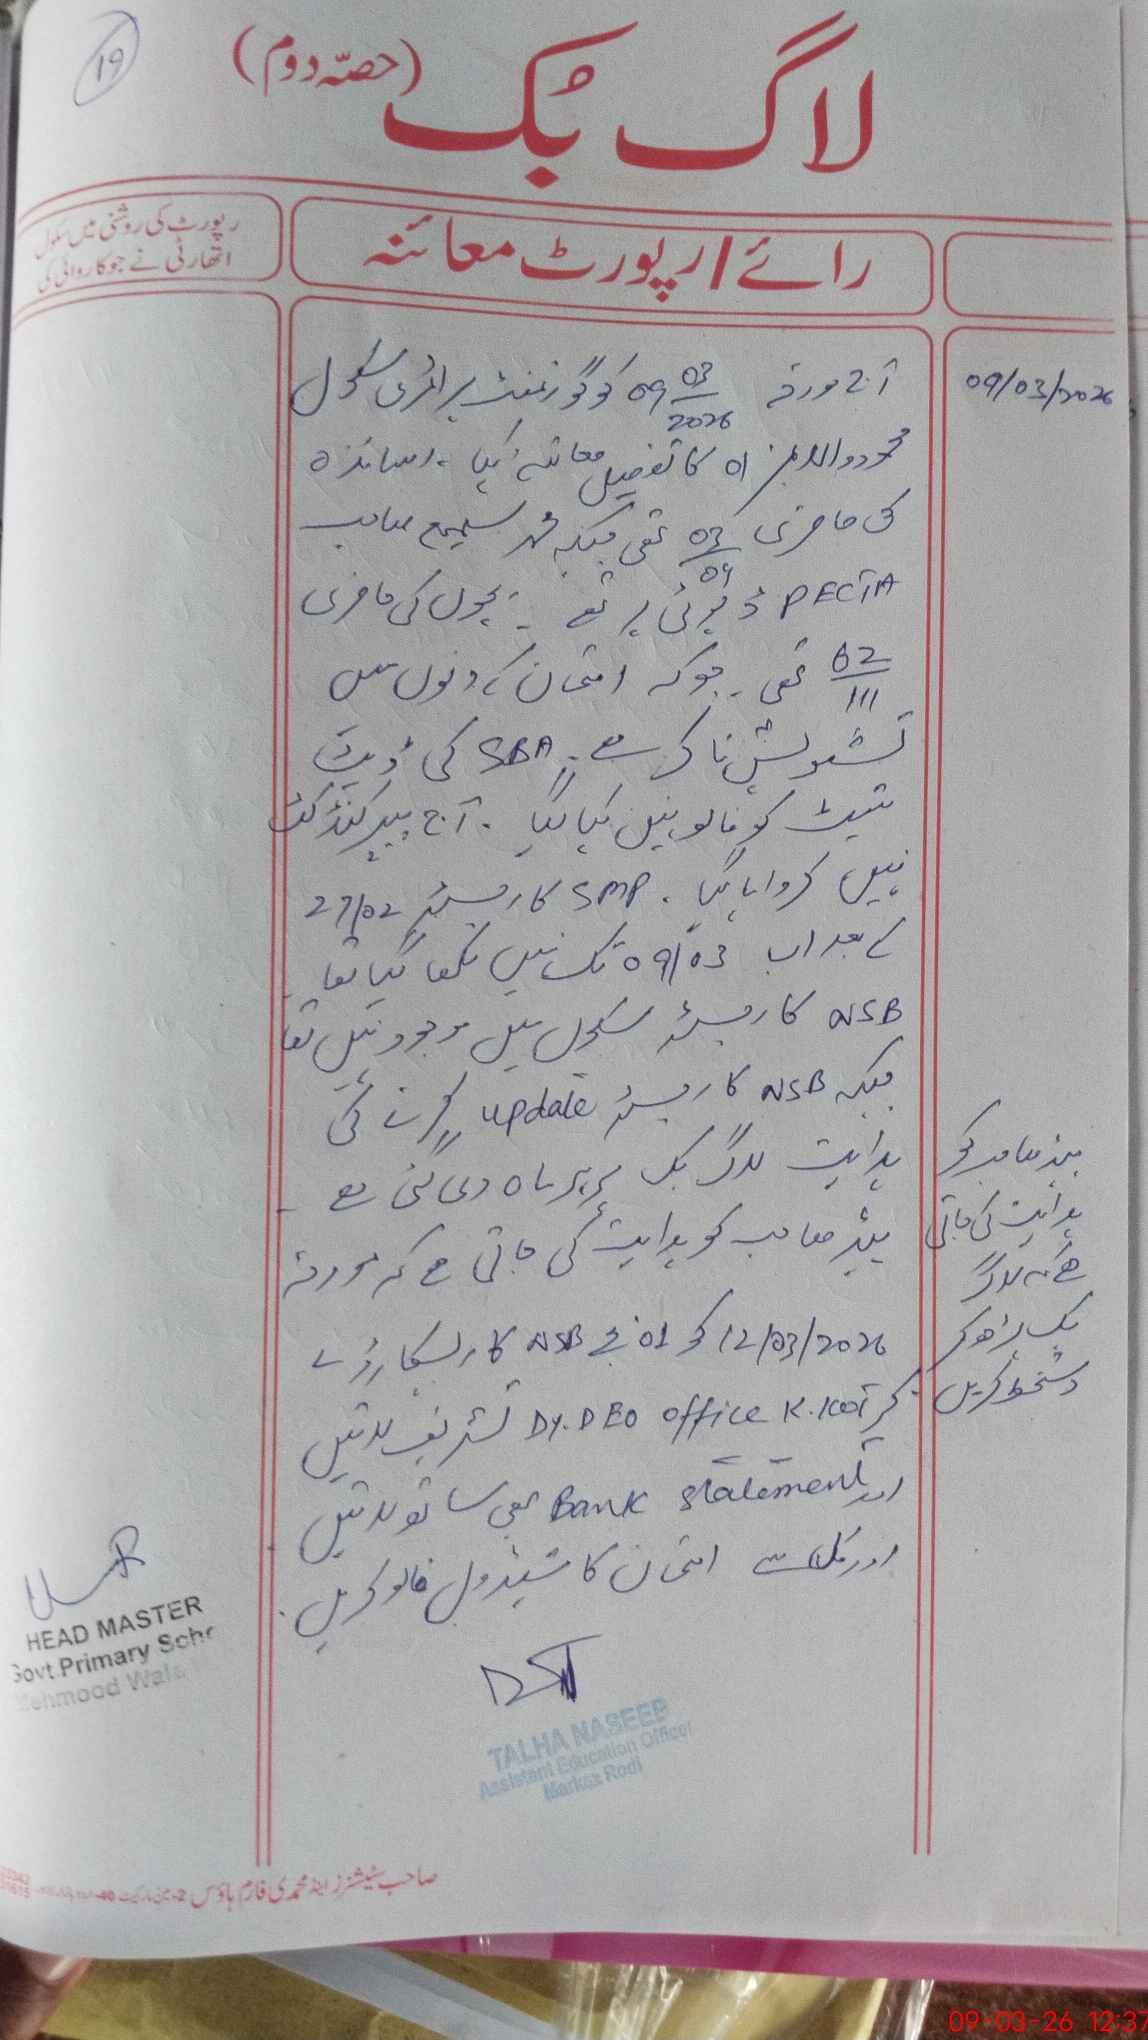 19
لاگ بُک (حصّہ دوم)
رائے / رپورٹ معائنہ
رپورٹ کی روشنی میں سکول
اتھارٹی نے جو کاروائی کی
09/03/2026
آج مورخہ 09 03/2026 کو گورنمنٹ پرائمری سکول
محمود والا نمبر 01 کا تفصیلی معائنہ کیا۔ اساتذہ
کی حاضری 03/04 تھی جبکہ محمد سمیع صاحب
PECTA ڈیوٹی پر تھے۔ بچوں کی حاضری
62/111 تھی۔ جو کہ امتحان کے دنوں میں
تشویش ناک ہے۔ SBA کی ڈیٹ
شیٹ کو فالو نہیں کیا گیا۔ آج پیپر کنڈکٹ
نہیں کروایا گیا۔ SMP کا رجسٹر 27/02
کے بعد اب 09/03 تک نہیں لکھا گیا تھا۔
NSB کا رجسٹر سکول میں موجود نہیں تھا
جبکہ NSB کا رجسٹر update کرنے کی
ہدایت لاگ بک پر ہر ماہ دی گئی ہے۔
ہیڈ صاحب کو ہدایت کی جاتی ہے کہ مورخہ
12/03/2026 کو 01 بجے NSB کا ریکارڈ لے
کر DY.DEO office K.Kot تشریف لائیں
اور Bank statement بھی ساتھ لائیں۔
اور کل سے امتحان کا شیڈول فالو کریں۔
ہیڈ صاحب کو
ہدایت کی جاتی
ہے کہ لاگ
بک پڑھ کر
دستخط کریں۔
HEAD MASTER
Govt.Primary Scho
Mehmood Wala
TALHA NASEEB
Assistant Education Officer
Markaz Rodi
صاحب سٹیشنرز اینڈ محمدی فارم ہاؤس
09-03-26 12:37